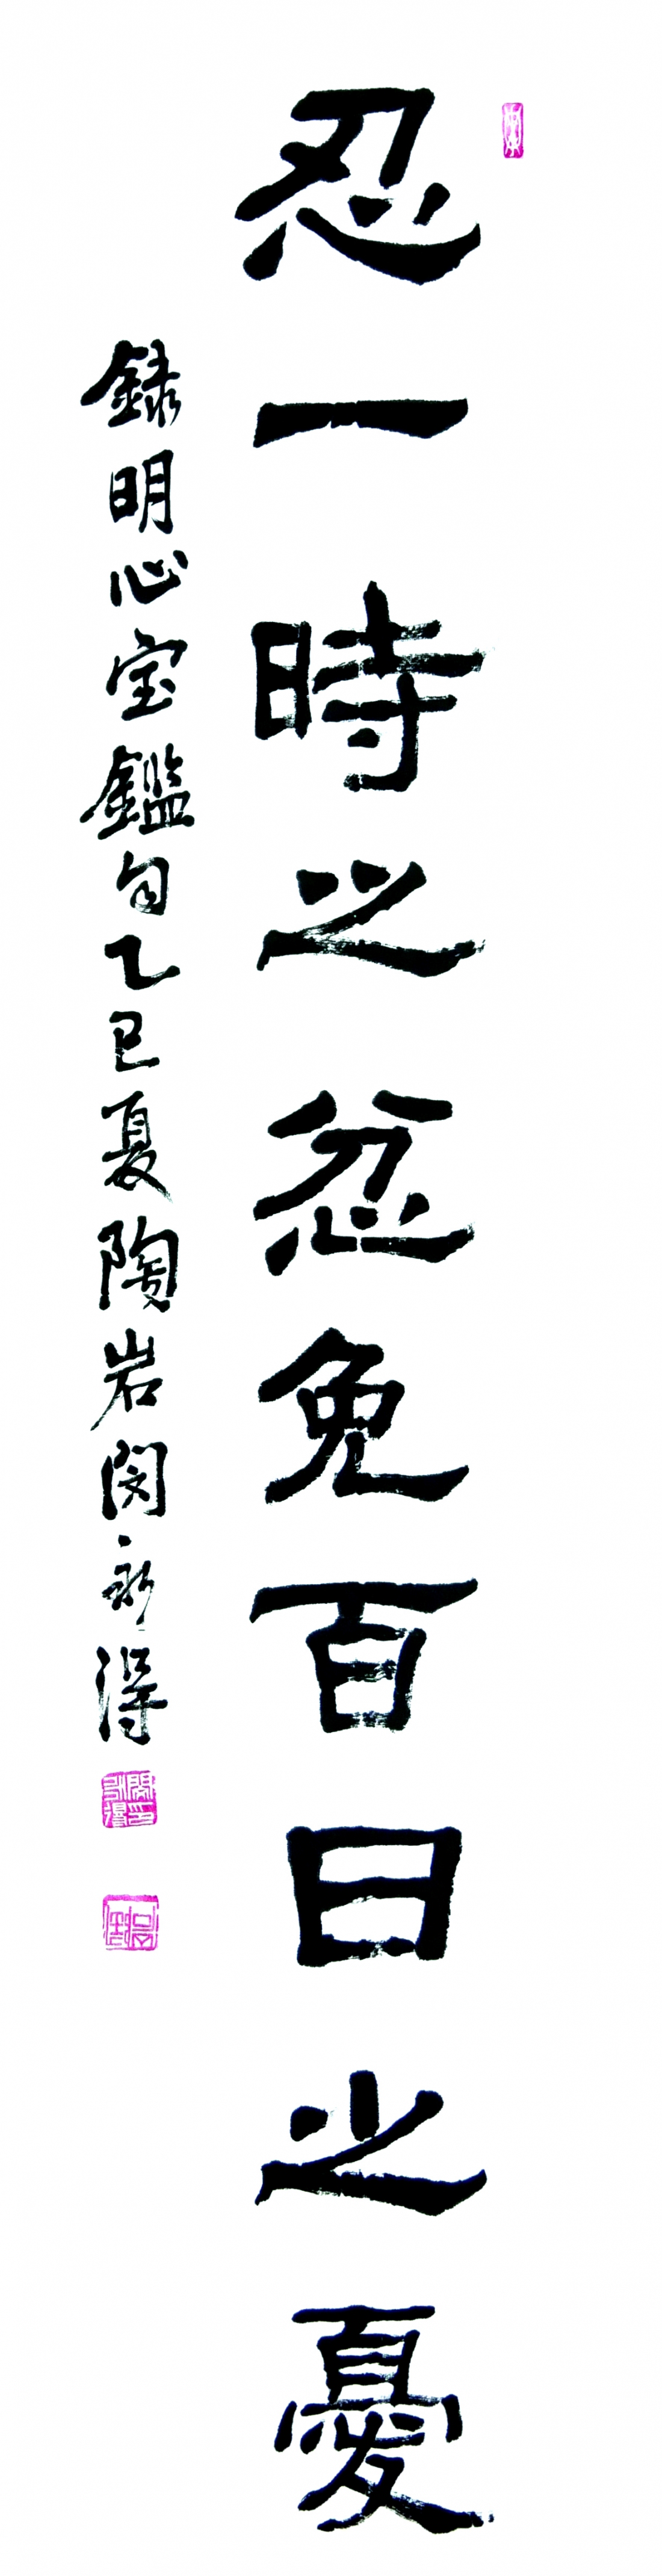 忍一時之忿免百日之憂
録明心宝鑑句乙巳夏陶岩閔永得